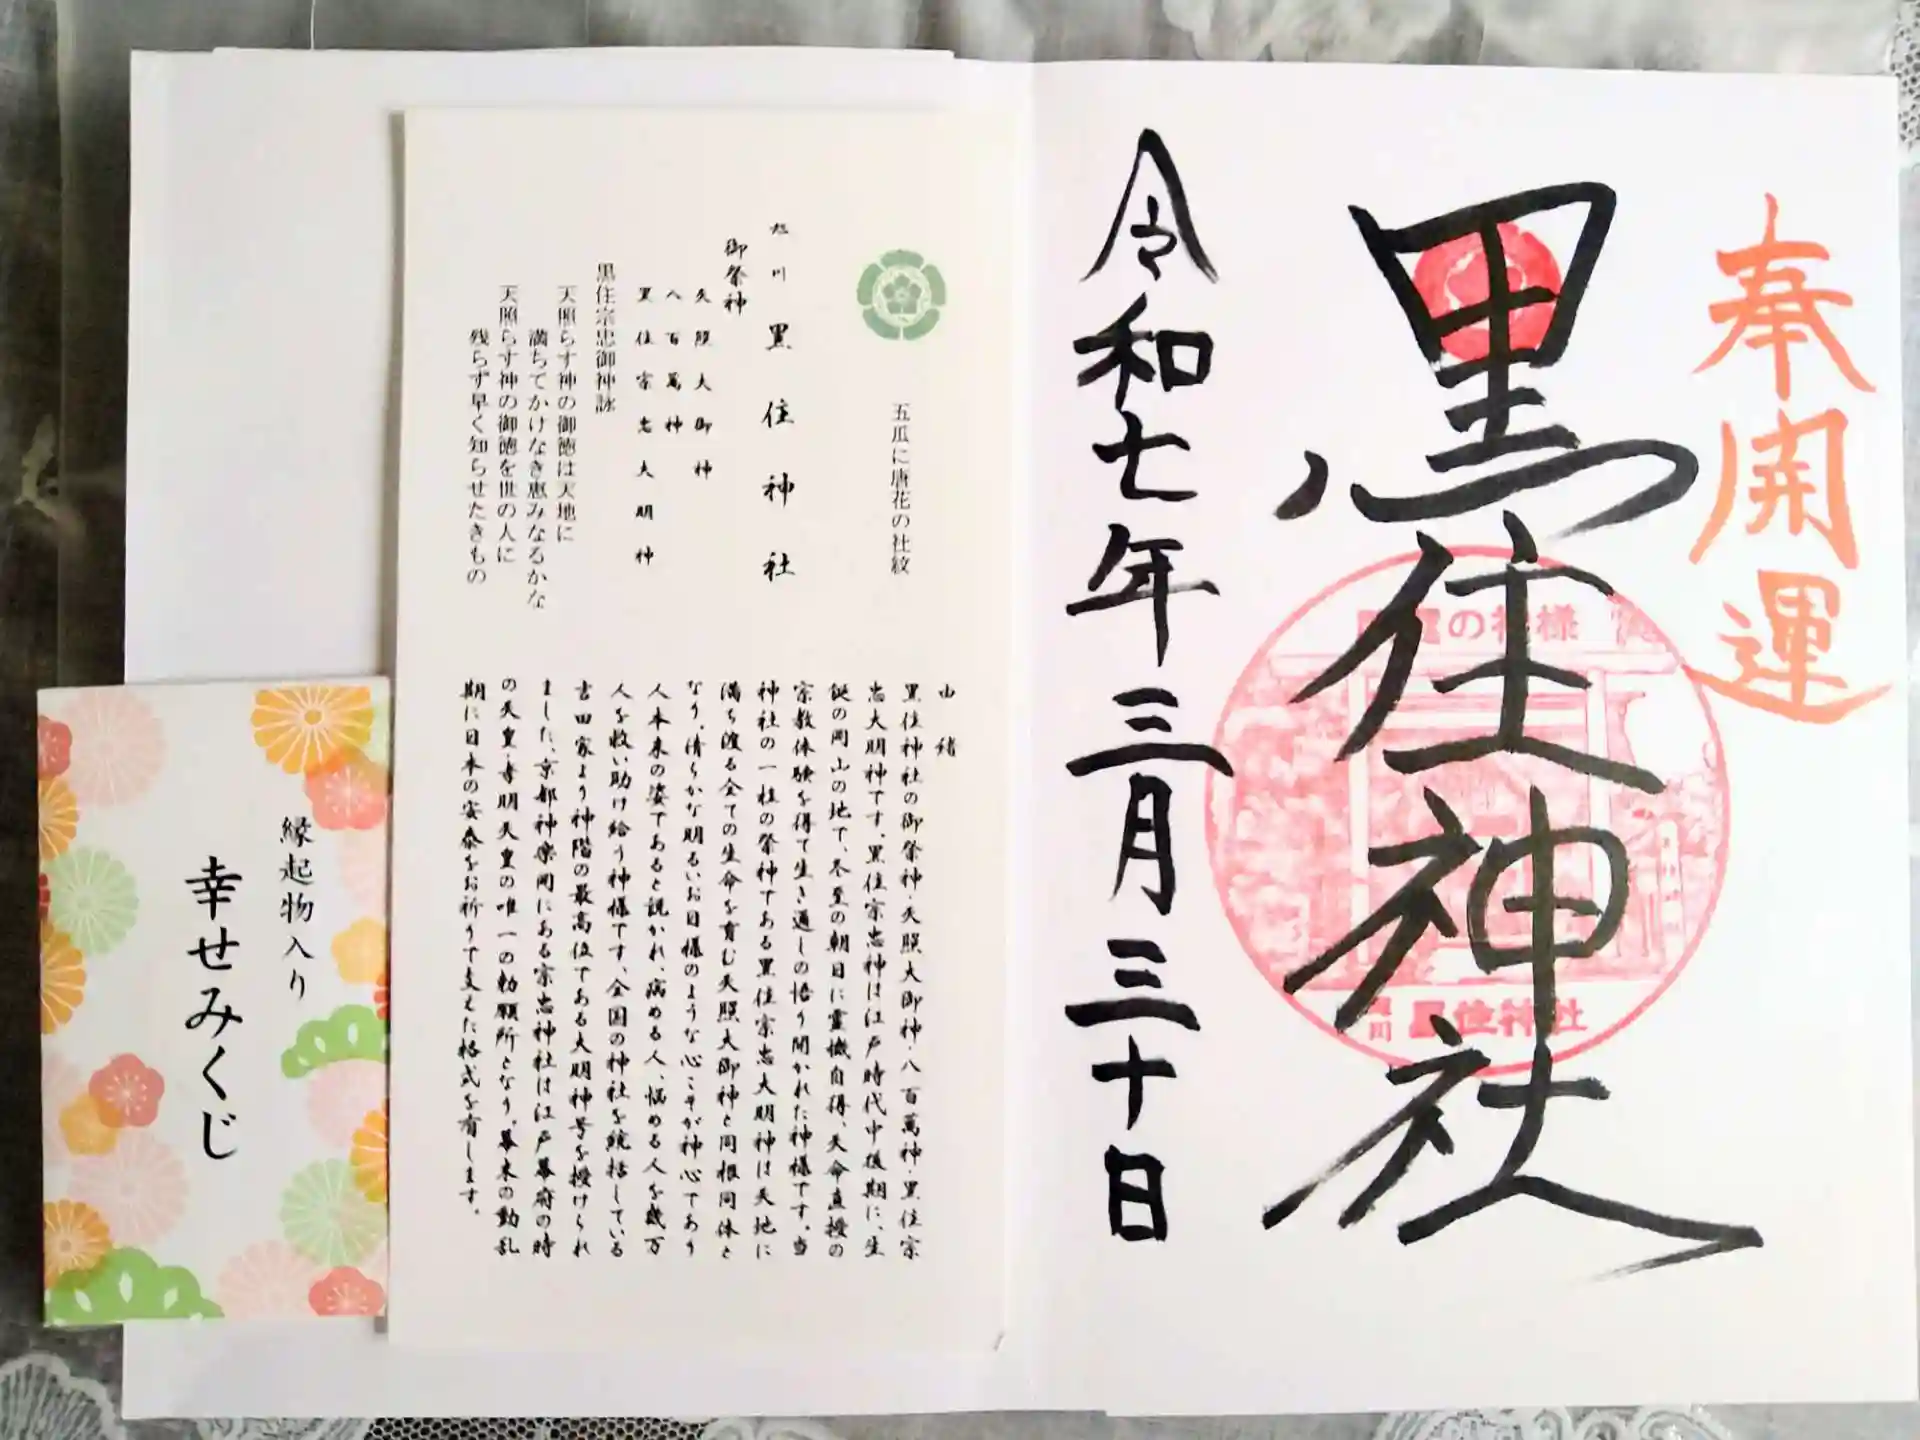 奉開運
黒住神社
令和七年三月三十日
の神様
黒住神社
五瓜に唐花の社紋
旭川 黒住神社
御祭神
天照大御神
八百萬神
黒住宗忠大明神
黒住宗忠御神詠
天照らす神の御徳は天地に
満ちてかけなき恵みなるかな
天照らす神の御徳を世の人に
残らず早く知らせたきもの
由緒
黒住神社の御祭神・天照大御神・八百萬神・黒住宗
忠大明神です。黒住宗忠神は江戸時代中後期に、生
誕の岡山の地で、冬至の朝日に霊機自得、天命直授の
宗教体験を得て生き通しの悟り開かれた神様です。当
神社の一柱の祭神である黒住宗忠大明神は天地に
満ち渡る全ての生命を育む天照大御神と同根同体と
なり、清らかな明るいお日様のような心こそが神心であり
人本来の姿であると説かれ、病める人、悩める人を幾万
人を救い助け給う神様です、全国の神社を統括している
吉田家より神階の最高位である大明神号を授けられ
ました、京都神楽岡にある宗忠神社は江戸幕府の時
の天皇・孝明天皇の唯一の勅願所となり、幕末の動乱
期に日本の安泰をお祈りで支えた格式を有します。
縁起物入り
幸せみくじ